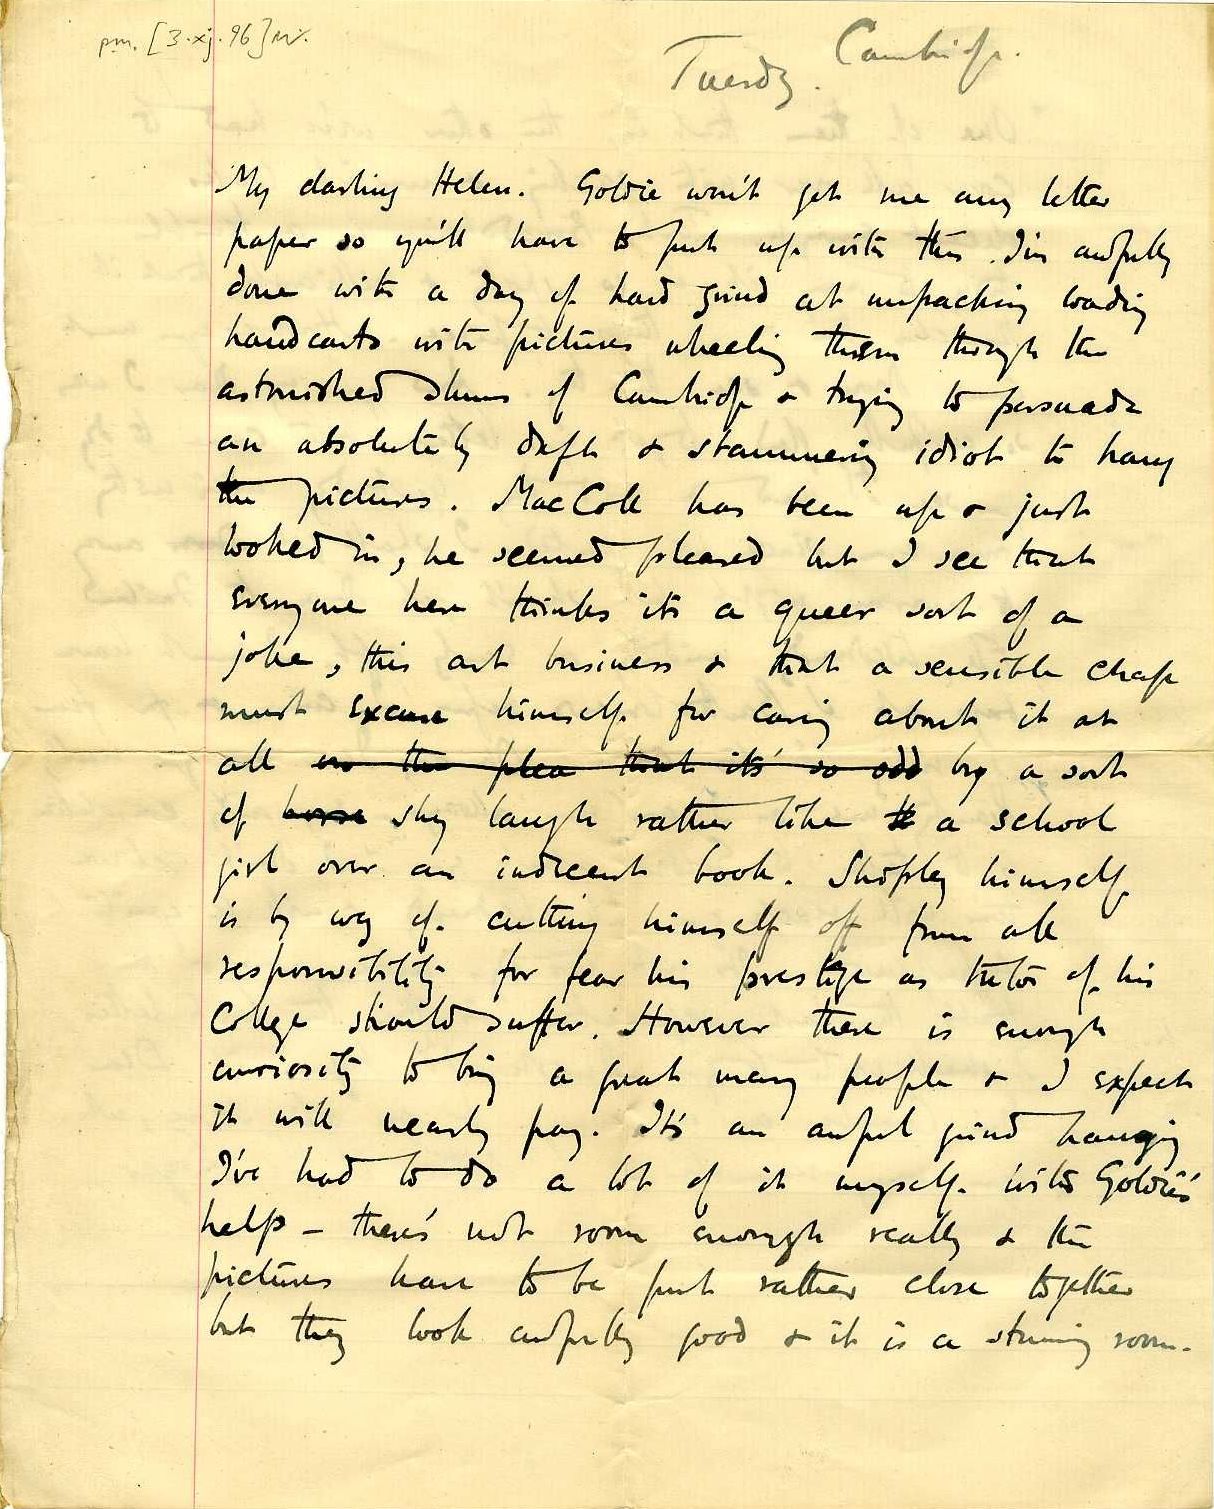 pm. [3.xj.96]
Cambridge.
Tuesday.
My darling Helen. Goldie won't get me any letter
paper so you'll have to put up with this. I'm awfully
done with a day of hard grind at unpacking loading
handcarts with pictures wheeling them through the
astonished slums of Cambridge & trying to persuade
an absolutely daft & stammering idiot to hang
the pictures. MacColl has been up & just
looked in, he seemed pleased but I see that
everyone here thinks it's a queer sort of a
joke, this art business & that a sensible chap
must excuse himself for caring about it at
all on the plea that it's so odd by a sort
of horse shy laugh rather like a school
girl over an indecent book. Shipley himself
is by way of cutting himself off from all
responsibility for fear his prestige as tutor of his
College should suffer. However there is enough
curiosity to bring a great many people & I expect
it will nearly pay. It's an awful grind hanging
I've had to do a lot of it myself with Goldie's
help – there's not room enough really & the
pictures have to be put rather close together
but they look awfully good & it is a stunning room.